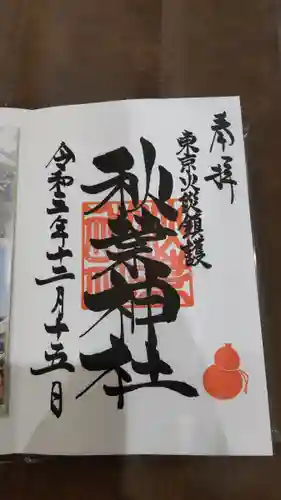 奉拝
東京火災鎮護
秋葉神社
令和五年十二月十五日